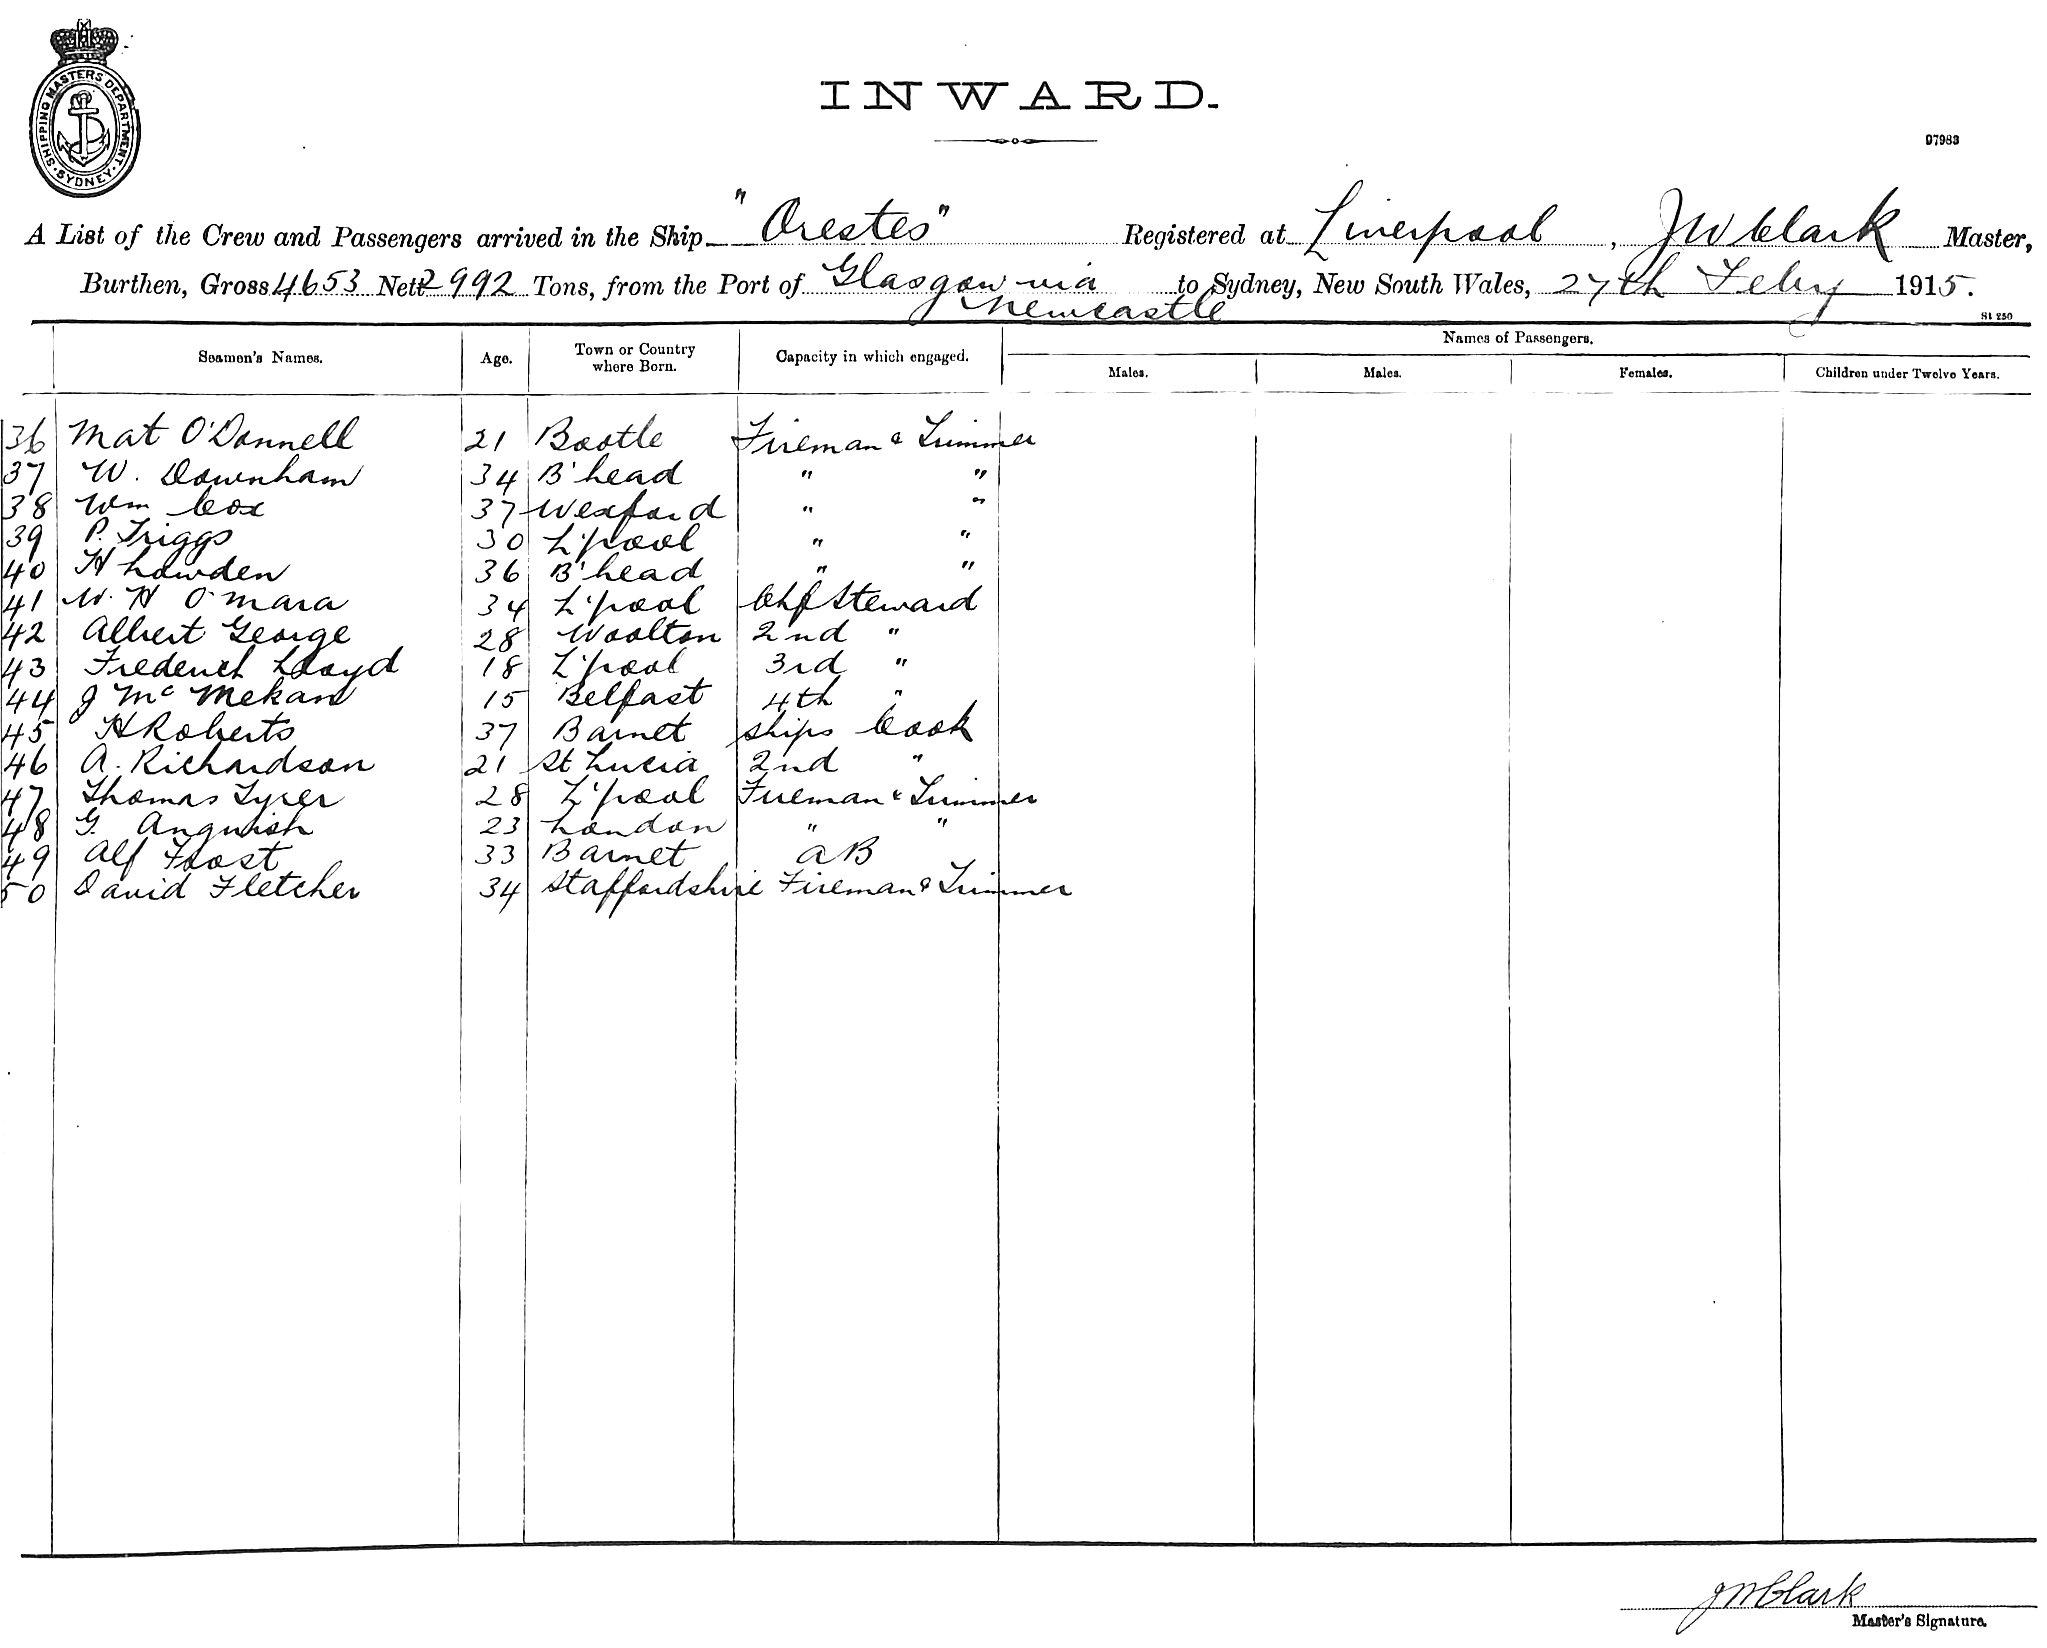 SHIPPING MASTERS DEPARTMENT
SYDNEY
INWARD.
97983
A List of the Crew and Passengers arrived in the Ship "Orestes" Registered at Liverpool, J W Clark Master,
Burthen, Gross 4653 Nett 2992 Tons, from the Port of Glasgow via Newcastle to Sydney, New South Wales, 27th Feby 1915.
81 250
Seamen's Names. Age. Town or Country where Born. Capacity in which engaged. Names of Passengers.
Males. Males. Females. Children under Twelve Years.
36 Mat O'Donnell 21 Bootle Fireman & Trimmer
37 W. Downham 34 B'head " "
38 Wm Cox 37 Wexford " "
39 P. Triggs 30 L'pool " "
40 H Lowden 36 B'head " "
41 W. H O'Mara 34 L'pool Chf Steward
42 Albert George 28 Woolton 2nd "
43 Frederick Lloyd 18 L'pool 3rd "
44 J Mc Mekan 15 Belfast 4th "
45 H Roberts 37 Barnet Ships Cook
46 A. Richardson 21 St Lucia 2nd "
47 Thomas Tyrer 28 L'pool Fireman & Trimmer
48 G. Anguish 23 London " "
49 Alf Frost 33 Barnet AB
50 David Fletcher 34 Staffordshire Fireman & Trimmer
J W Clark
Master's Signature.